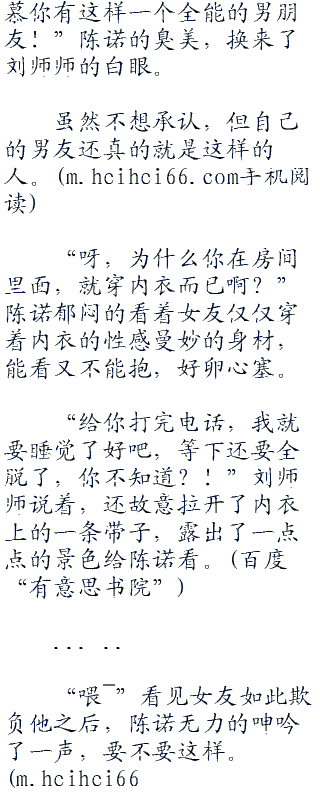 慕你有这样一个全能的男朋
友！”陈诺的臭美，换来了
刘师师的白眼。
虽然不想承认，但自己
的男友还真的就是这样的
人。(m.hcihci66.com手机阅
读)
“呀，为什么你在房间
里面，就穿内衣而已啊？”
陈诺郁闷的看着女友仅仅穿
着内衣的性感曼妙的身材，
能看又不能抱，好卵心塞。
“给你打完电话，我就
要睡觉了好吧，等下还要全
脱了，你不知道？！”刘师
师说着，还故意拉开了内衣
上的一条带子，露出了一点
点的景色给陈诺看。(百度
“有意思书院”)
... ..
“喂¯”看见女友如此欺
负他之后，陈诺无力的呻吟
了一声，要不要这样。
(m.hcihci66